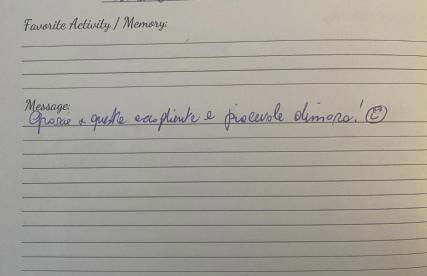 Favorite Activity / Memory:
Message:
Grazie a questa accogliente e piacevole dimora!